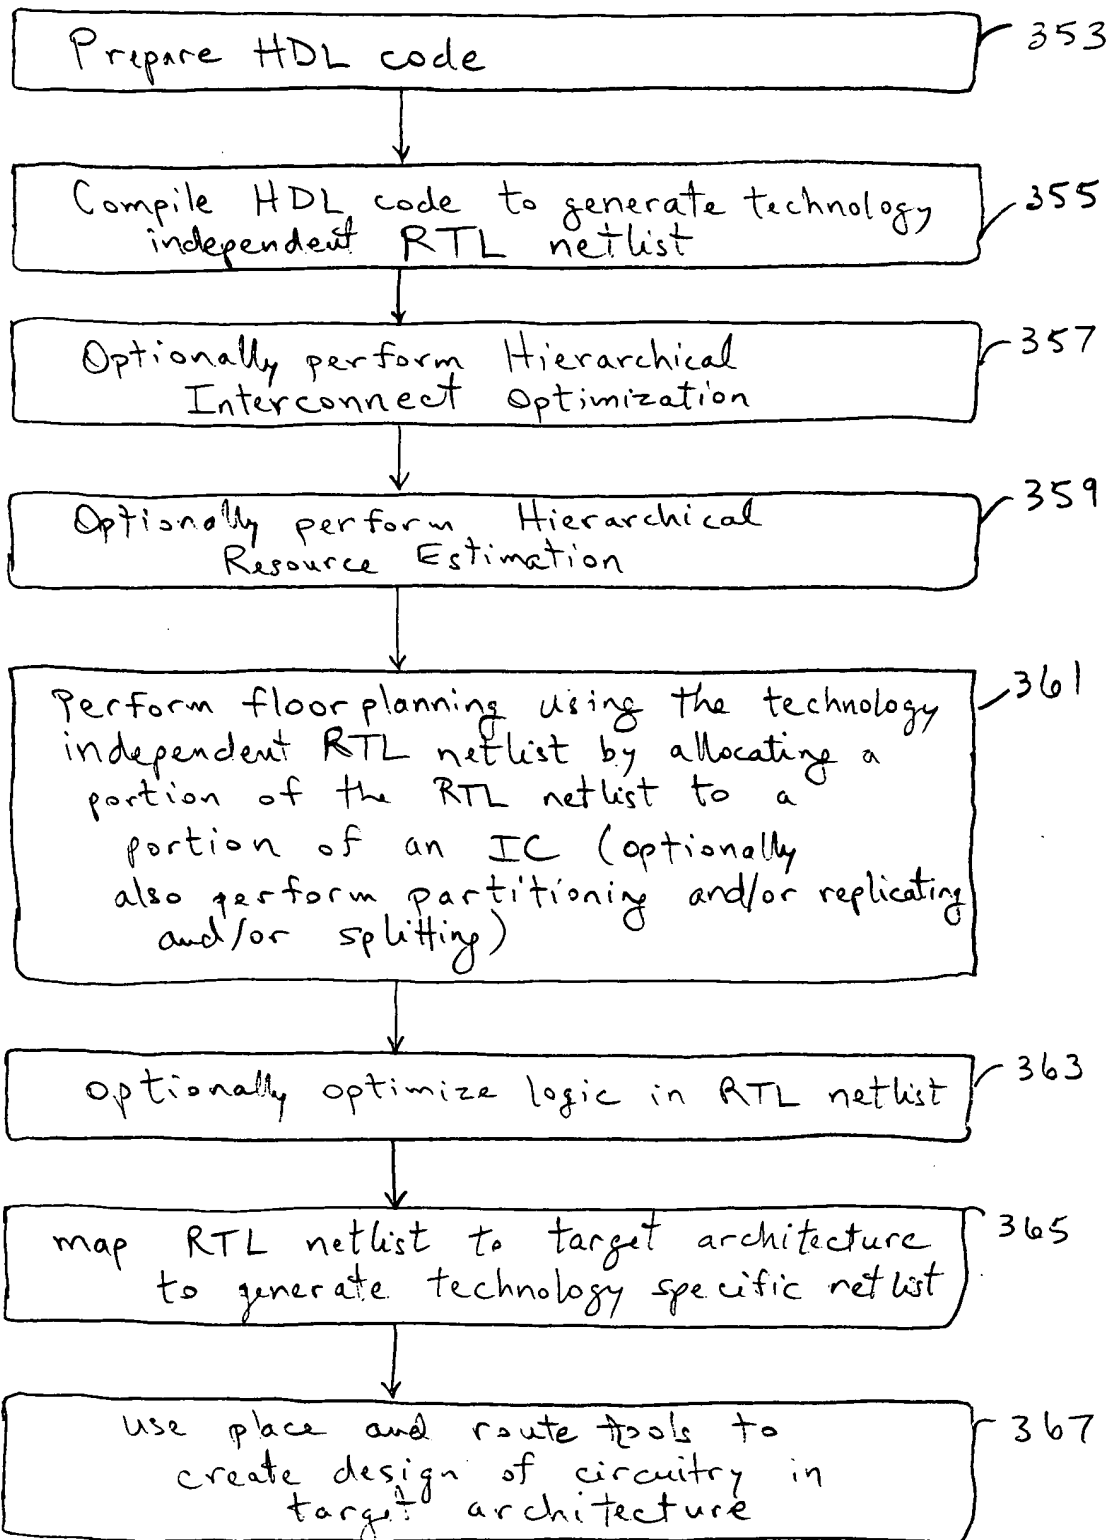 Prepare HDL code
353
Compile HDL code to generate technology
independent RTL netlist
355
Optionally perform Hierarchical
Interconnect Optimization
357
Optionally perform Hierarchical
Resource Estimation
359
Perform floorplanning using the technology
independent RTL netlist by allocating a
portion of the RTL netlist to a
portion of an IC (optionally
also perform partitioning and/or replicating
and/or splitting)
361
optionally optimize logic in RTL netlist
363
map RTL netlist to target architecture
to generate technology specific netlist
365
use place and route tools to
create design of circuitry in
target architecture
367